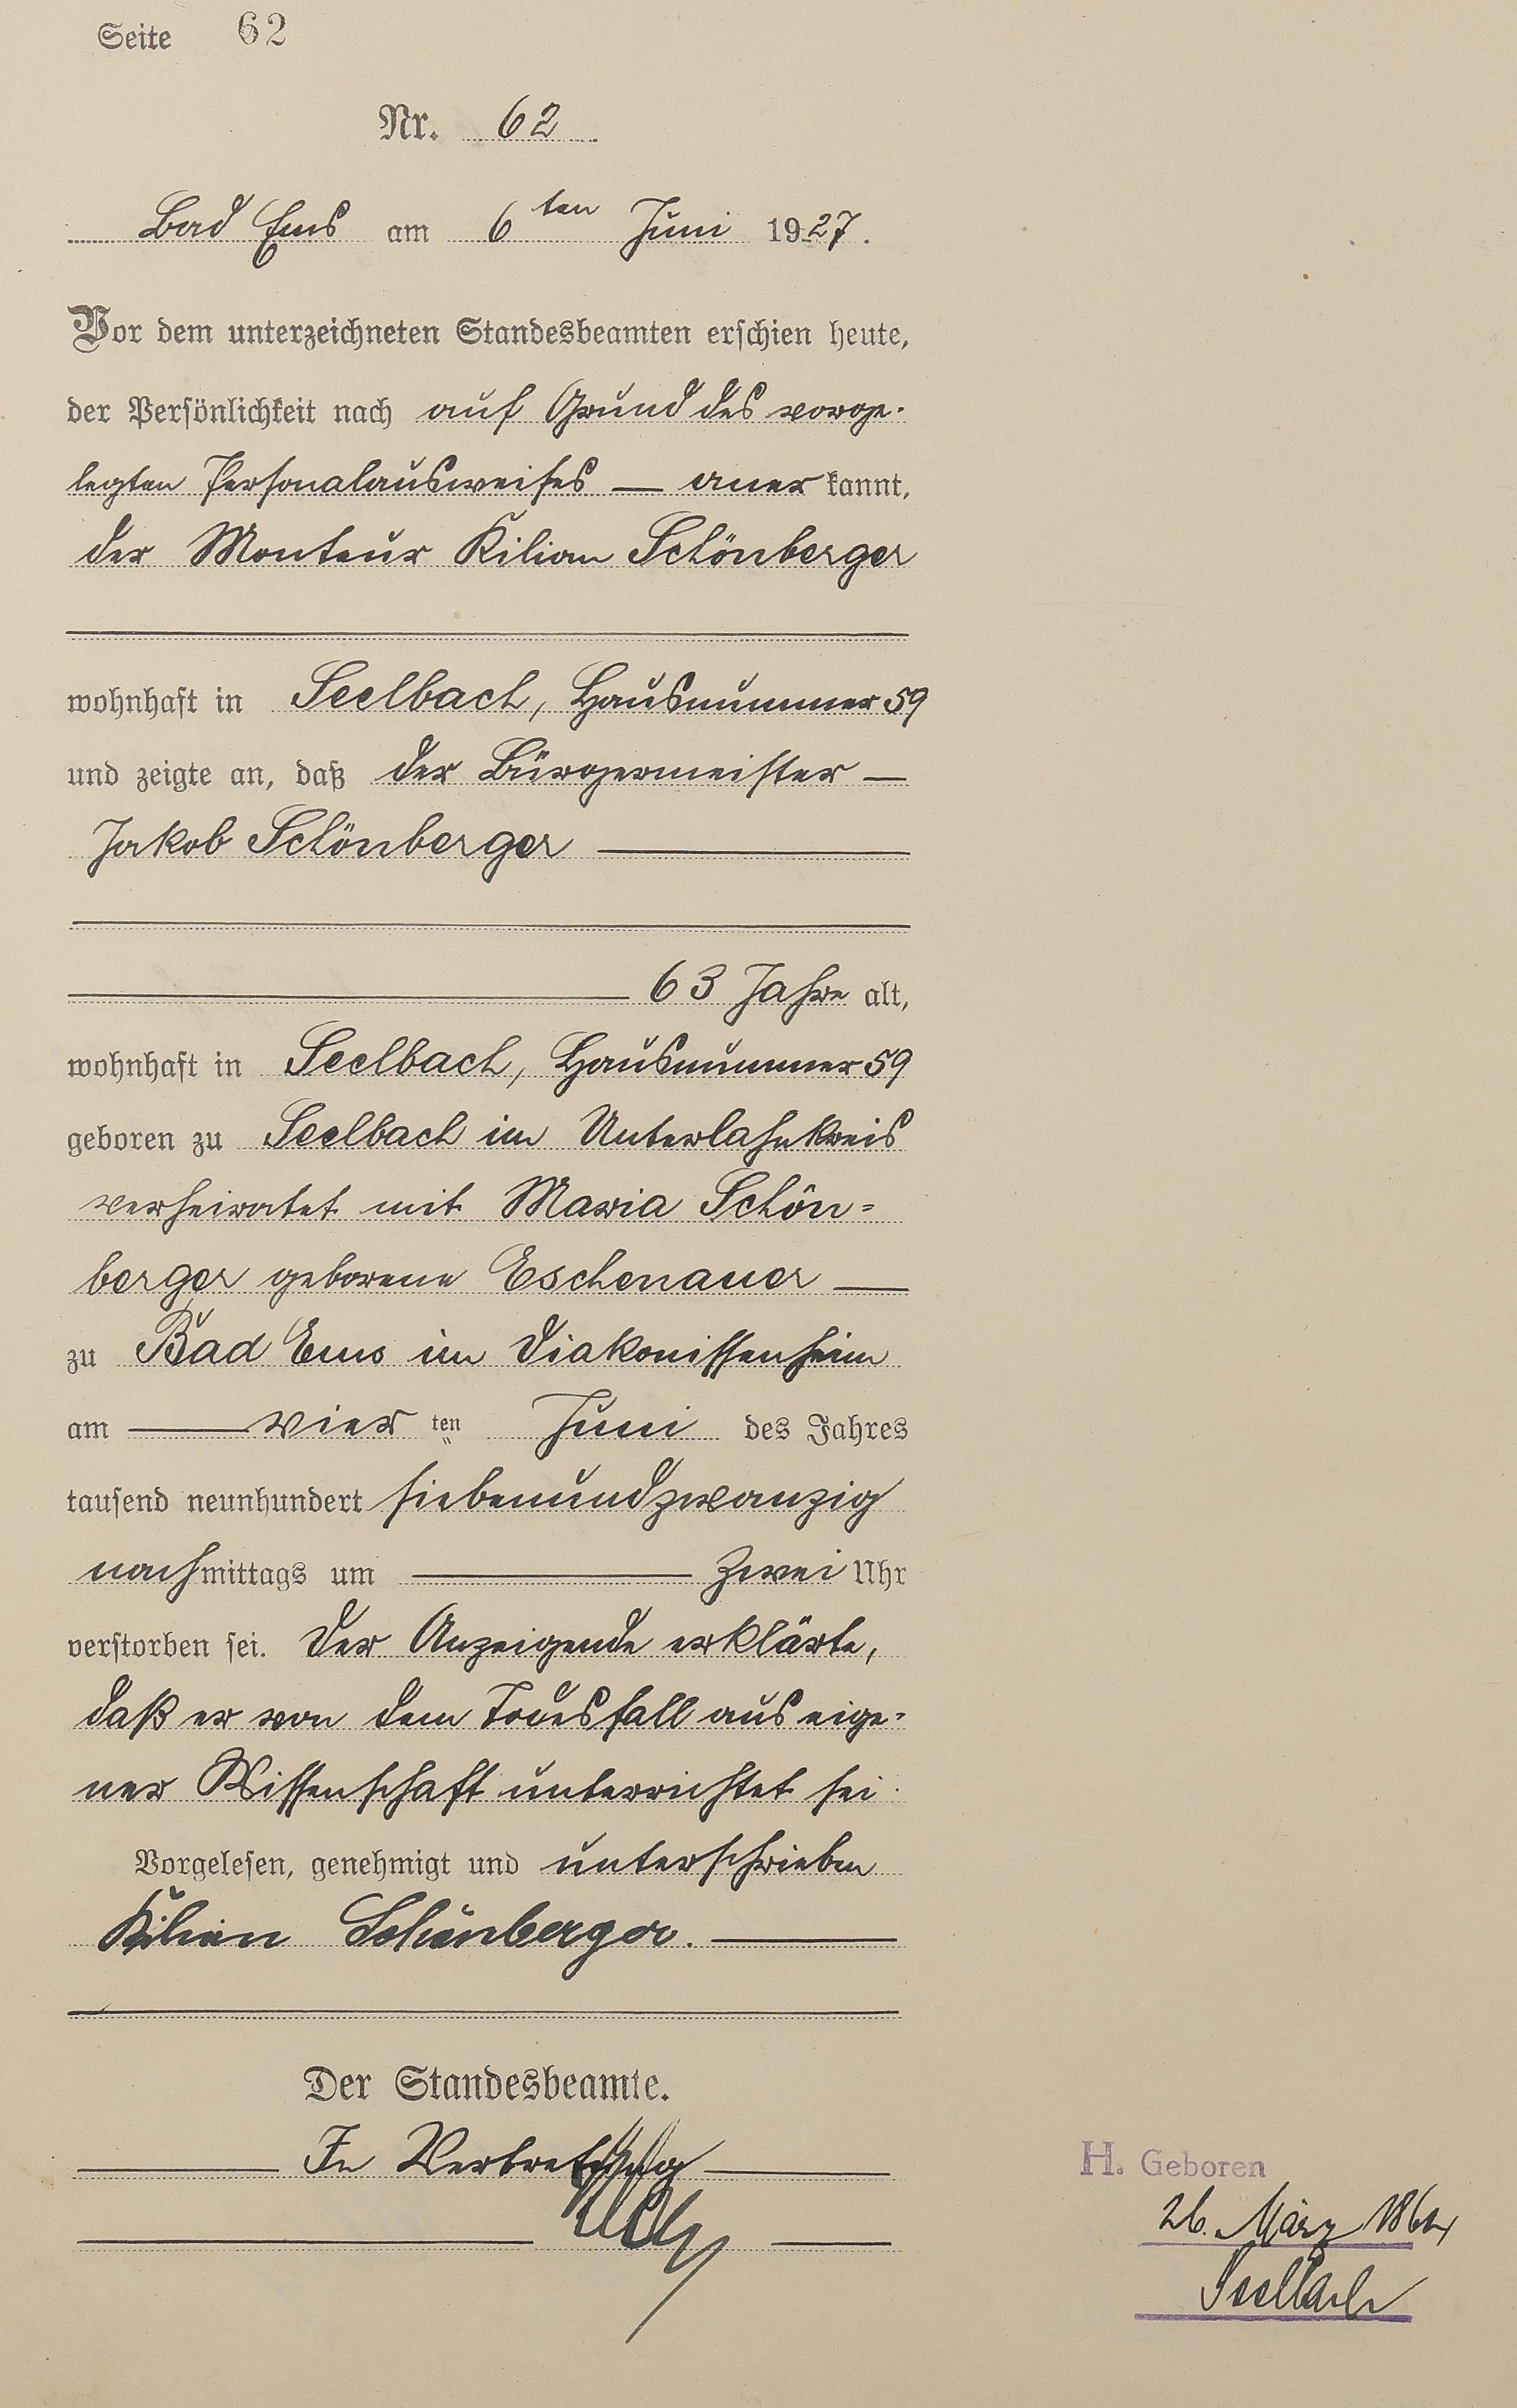 Seite 62
Nr. 62
Bad Ems am 6ten Juni 1927.
Vor dem unterzeichneten Standesbeamten erschien heute,
der Persönlichkeit nach auf Grund des vorge-
legten Personalausweises — anerkannt,
der Monteur Kilian Schönberger
wohnhaft in Seelbach, Hausnummer 59
und zeigte an, daß der Bürgermeister —
Jakob Schönberger
63 Jahre alt,
wohnhaft in Seelbach, Hausnummer 59
geboren zu Seelbach im Unterlahnkreis
verheiratet mit Maria Schön=
berger geborene Eschenauer —
zu Bad Ems im Diakonissenheim
am — vierten Juni des Jahres
tausend neunhundert siebenundzwanzig
nachmittags um — zwei Uhr
verstorben sei. Der Anzeigende erklärte,
daß er von dem Todesfall aus eige=
ner Wissenschaft unterrichtet sei.
Vorgelesen, genehmigt und unterschrieben
Kilian Schönberger.
Der Standesbeamte.
In Vertretung
H. Geboren
26. März 1864
Seelbach